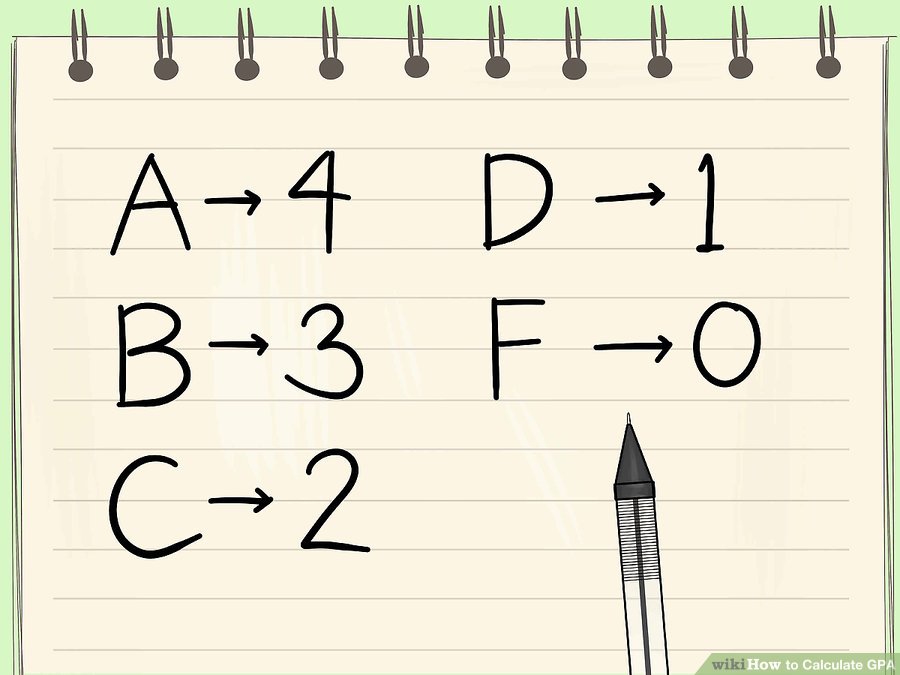 A → 4
B → 3
C → 2
D → 1
F → 0
wikiHow to Calculate GPA